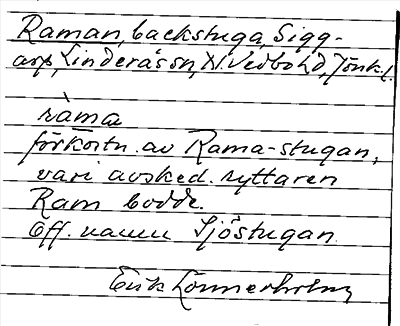 Raman, backstuga, Sigg-
arp, Linderås sn, N. Vedbo hd, Jönk. l.
ràma
förkortn. av Rama-stugan,
vari avsked. ryttaren
Ram bodde.
Eff. namn Sjöstugan.
Erik Lönnerholm